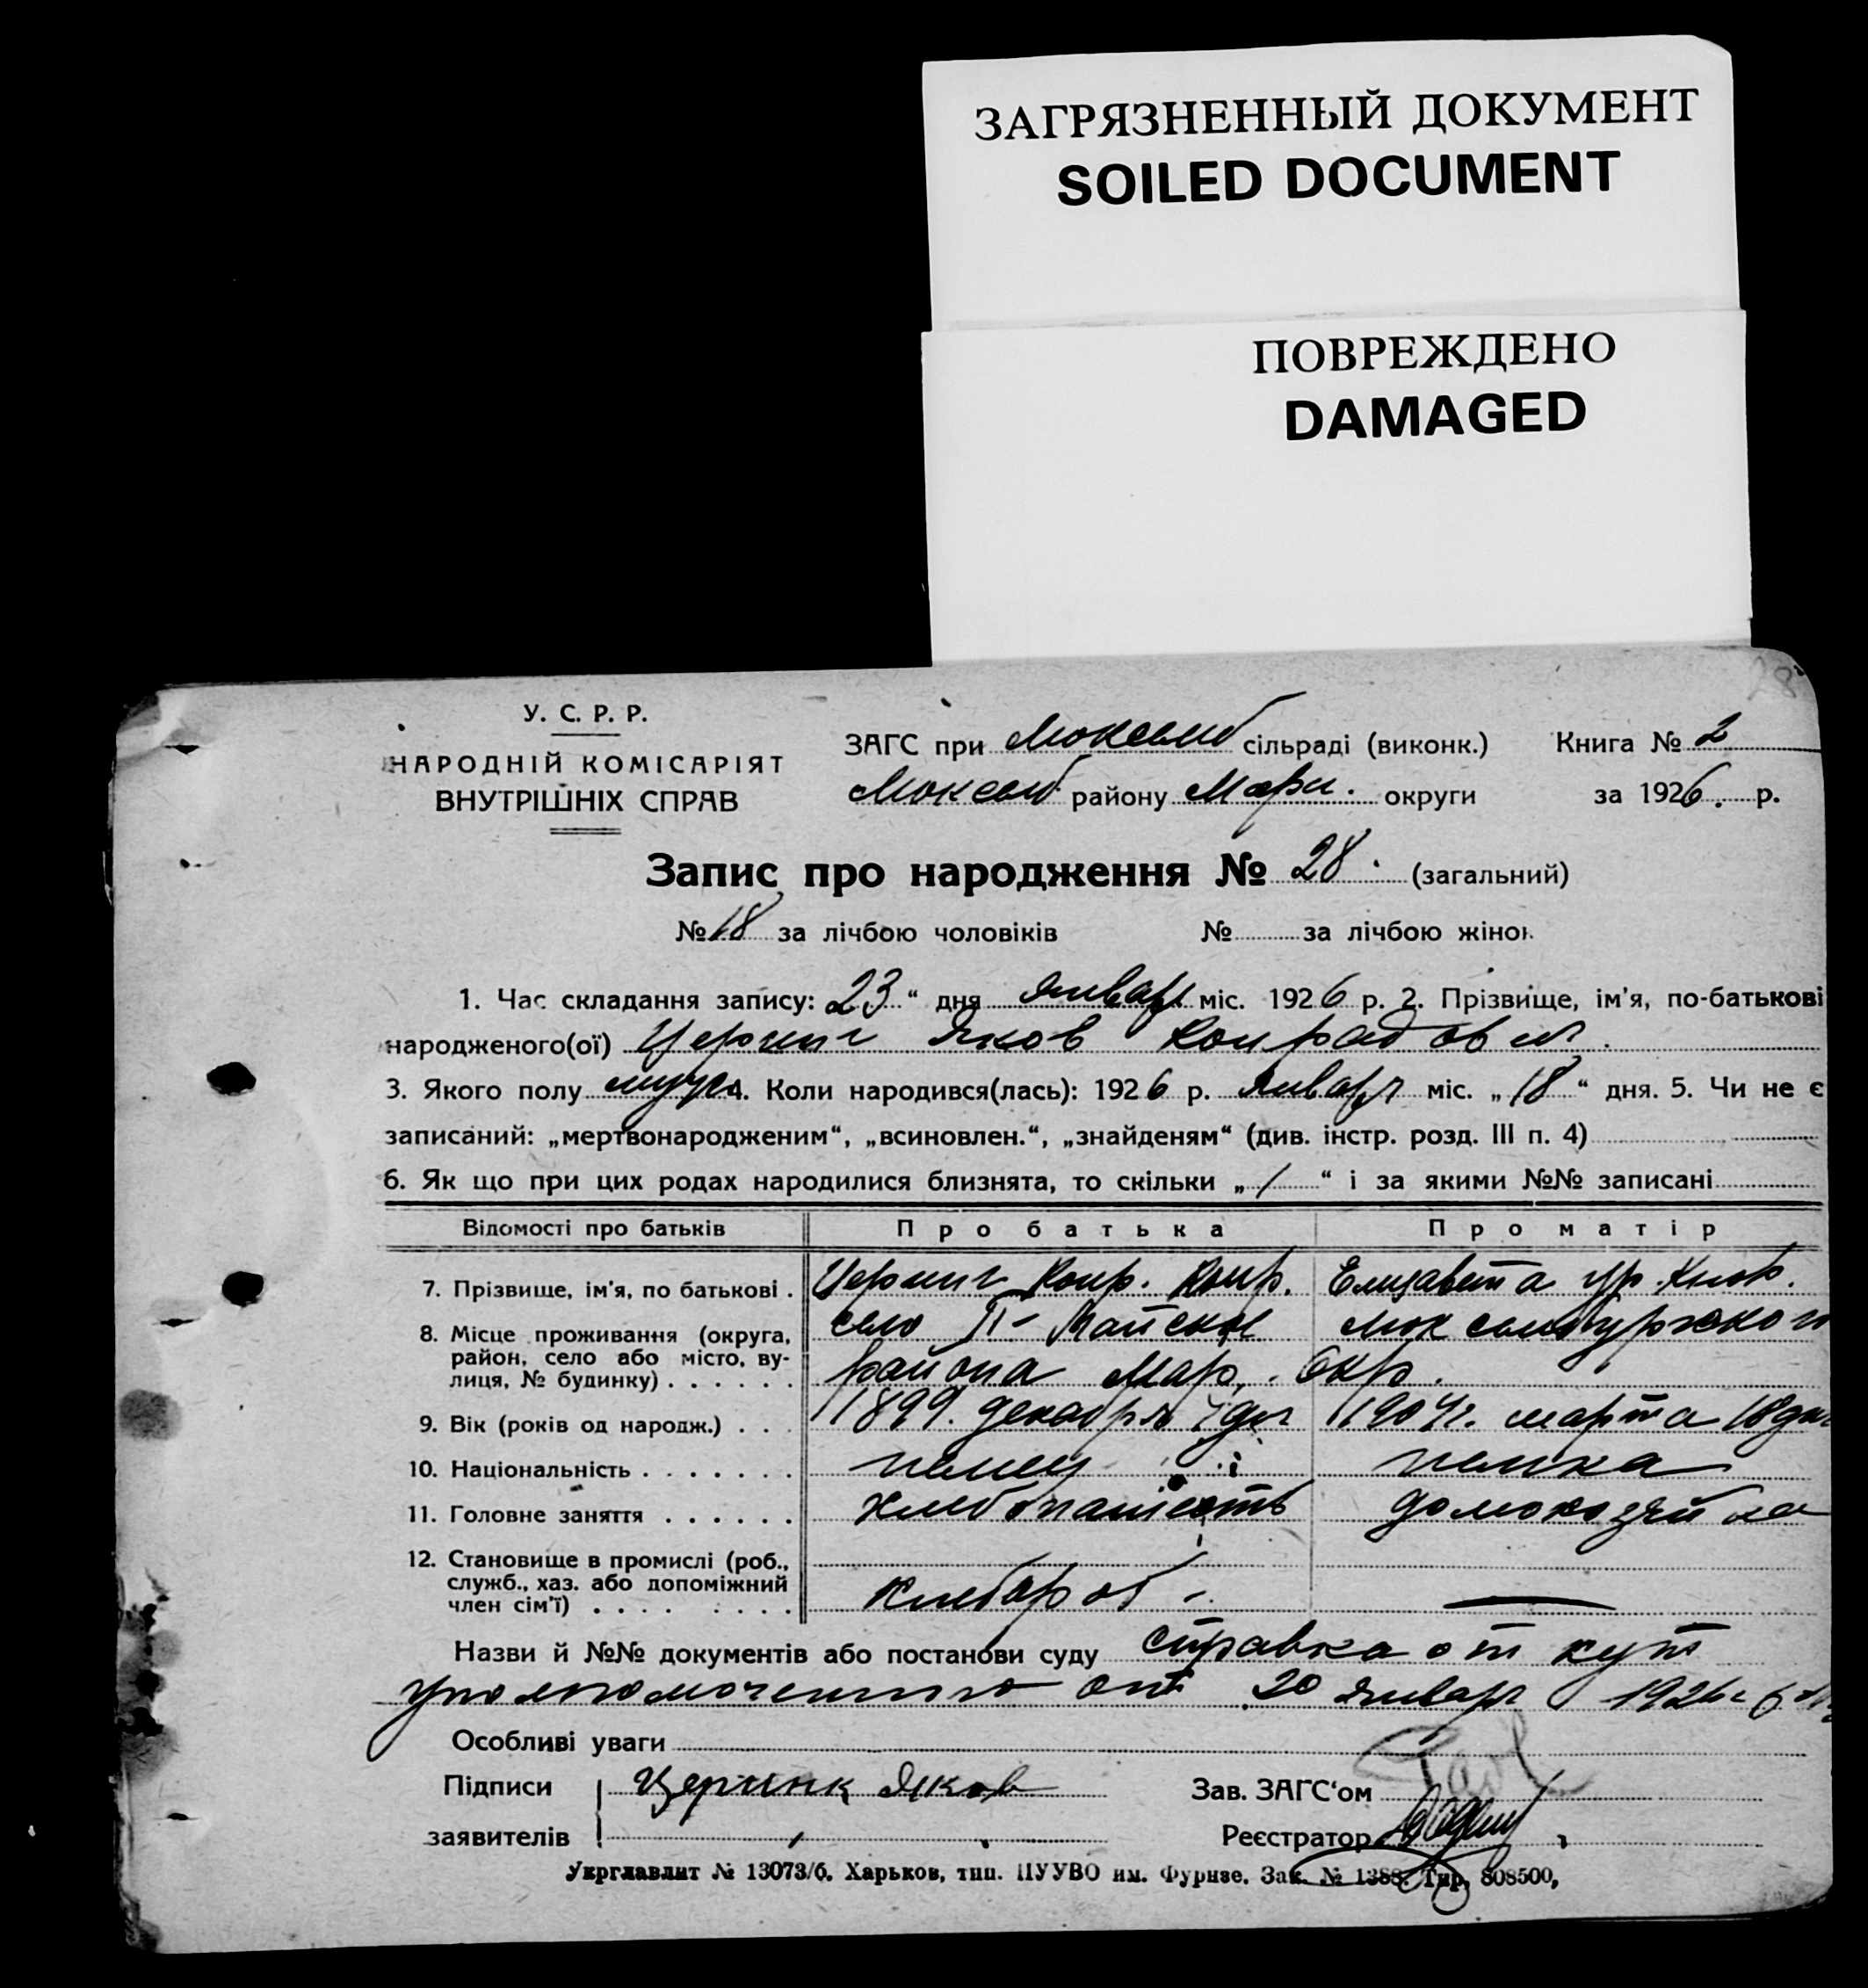 ЗАГРЯЗНЕННЫЙ ДОКУМЕНТ
SOILED DOCUMENT
ПОВРЕЖДЕНО
DAMAGED
28
У. С. Р. Р.
НАРОДНІЙ КОМІСАРІЯТ
ВНУТРІШНІХ СПРАВ
ЗАГС при Люксемб сільраді (виконк.) Книга № 2
Люксемб району Мари. округи за 1926. р.
Запис про народження № 28. (загальний)
№ 18 за лічбою чоловіків № за лічбою жінок
1. Час складання запису: 23 “ дня января міс. 1926 р. 2. Прізвище, ім’я, по-батькові
народженого(ої) Цернинг Яков Конрадович.
3. Якого полу муж 4. Коли народився(лась): 1926 р. января міс. „18“ дня. 5. Чи не є
записаний: „мертвонародженим“, „всиновлен.“, „знайденям“ (див. інстр. розд. III п. 4)
6. Як що при цих родах народилися близнята, то скільки „1“ і за якими №№ записані
Відомості про батьків Про батька Про матір
7. Прізвище, ім’я, по батькові . Цернинг Конр. Конр. Елизавета ур.
8. Місце проживання (округа, район, село або місто, вулиця, № будинку) . . . . . . село Майское Люксембургского
района Мар. Окр.
9. Вік (років од народж.) . . . 1899. декабря дня 1904г. марта 18 дня
10. Національність . . . . . . . немец немка
11. Головне заняття . . . . . . хлебопашество домохозяйка
12. Становище в промислі (роб., служб., хаз. або допоміжний член сім’ї) . . . . . . . . хлебороб - —
Назви й №№ документів або постанови суду Справка от
уполномоченного от 20 января 1926г
Особливі уваги
Підписи Цернинк Яков Зав. ЗАГС‘ом
заявителів Реєстратор
Укрглавлит № 13073/б. Харьков, тип. ПУУВО им. Фрунзе. Зак. № 1388. Тир. 808500,